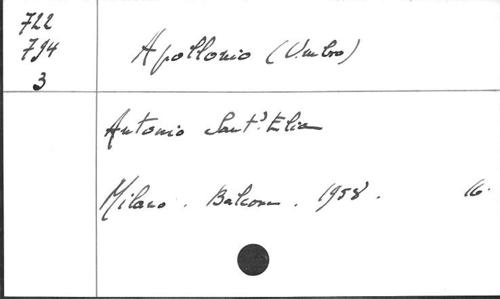 722
794
3
Apollonio (Umbro)
Antonio Sant'Elia
Milano . Balcone . 1958 . 16.